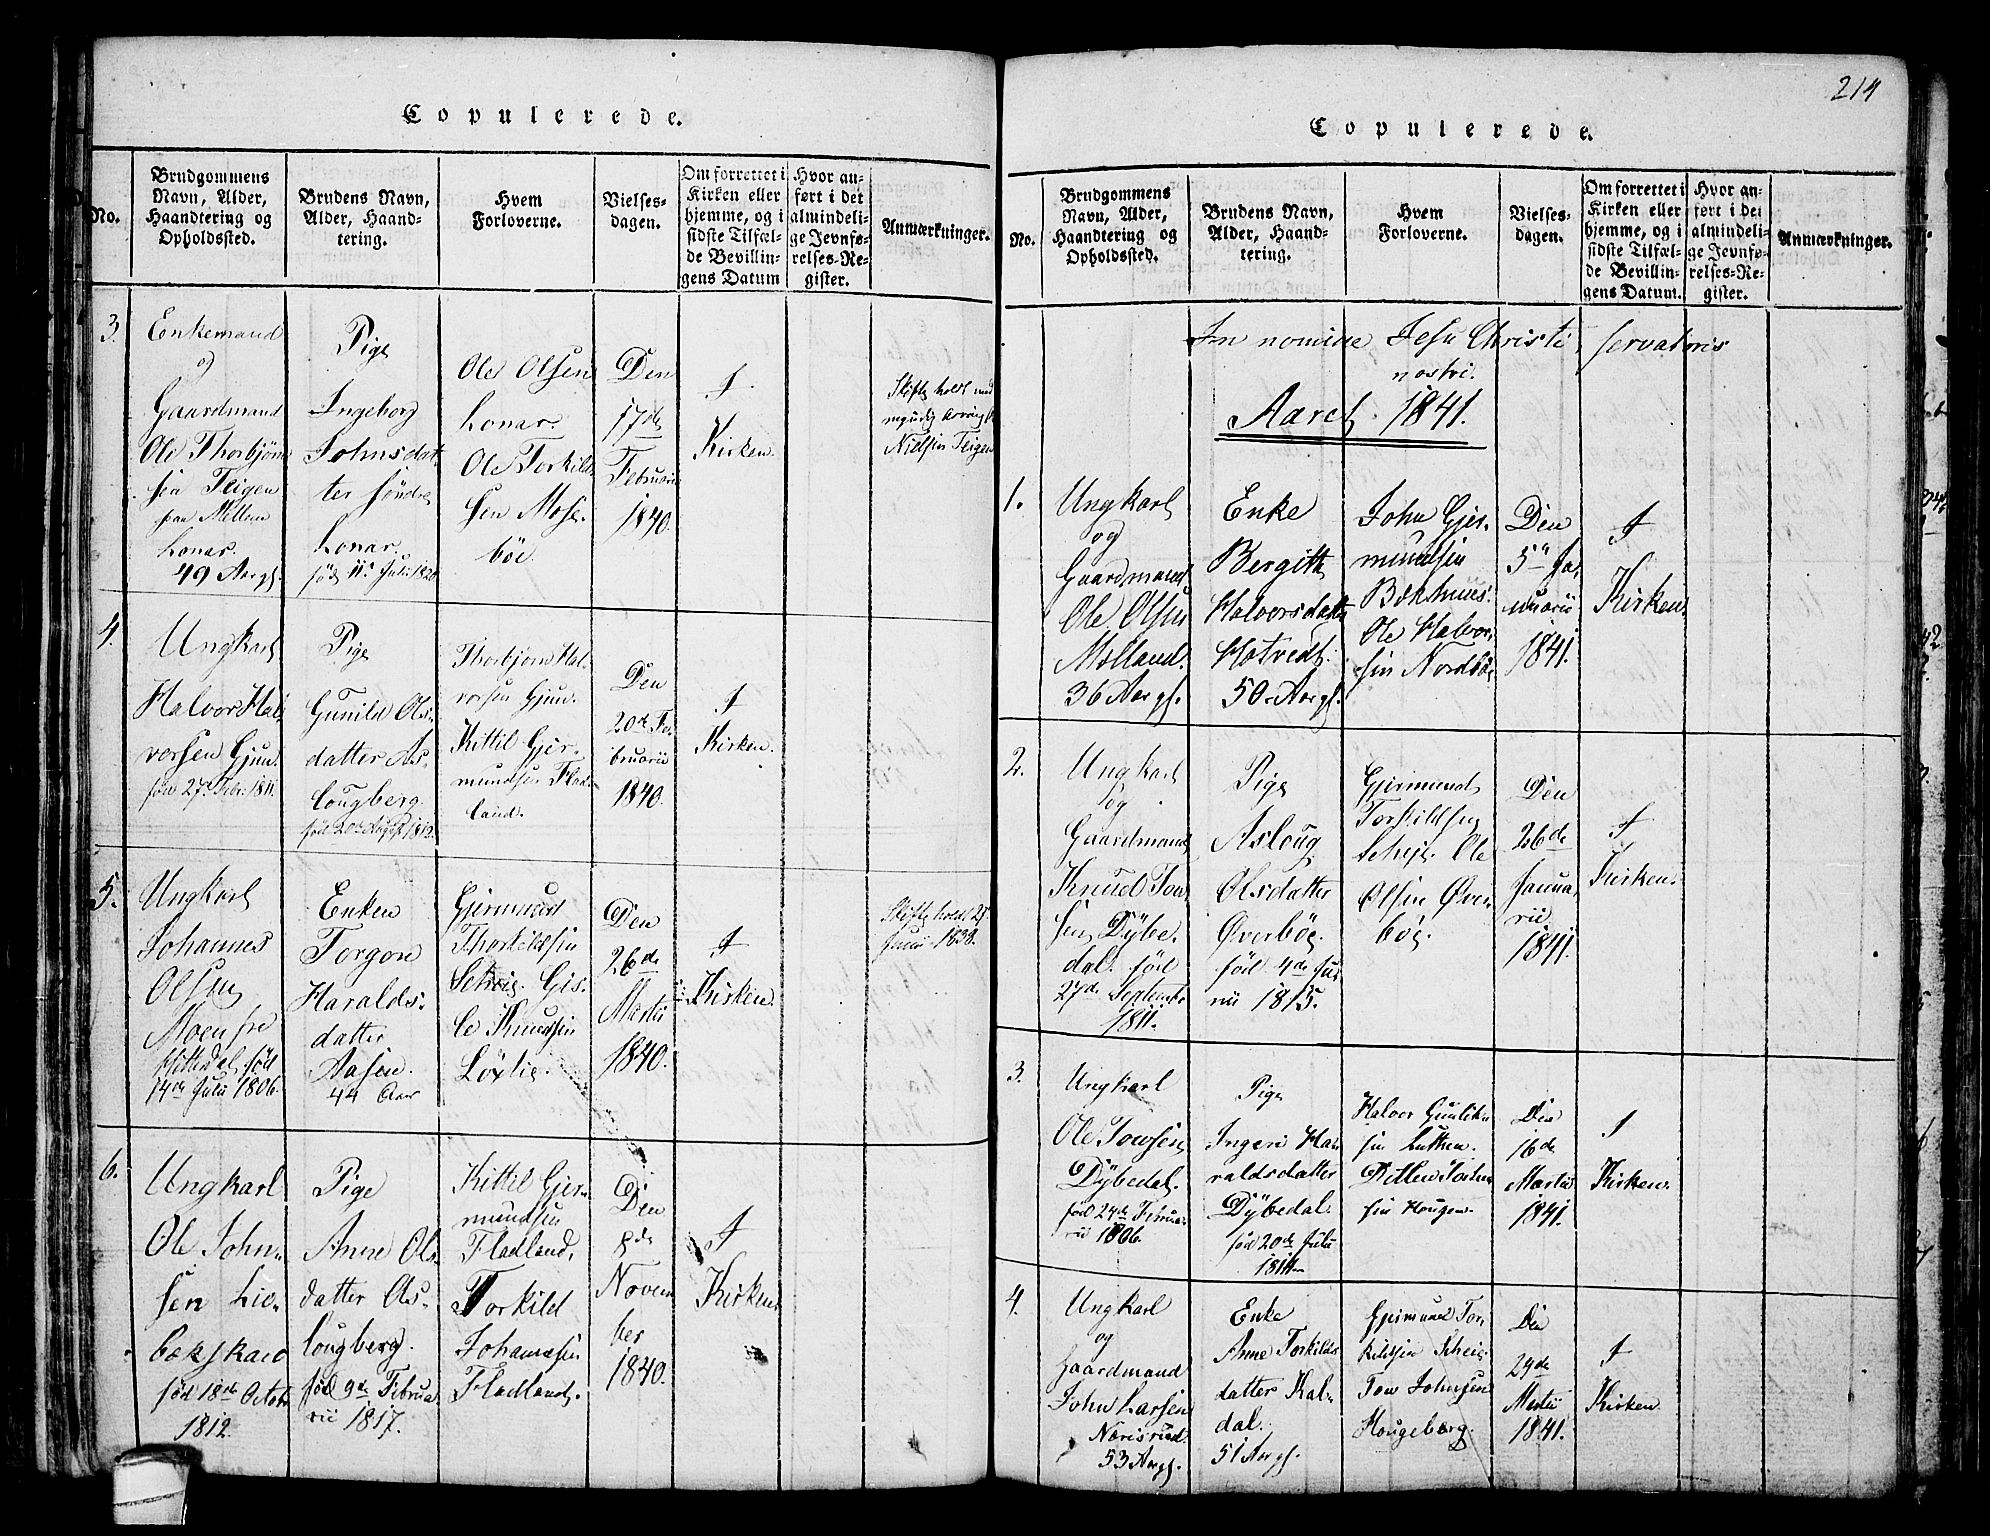 Copulerede.
No.
Brudgommens
Navn, Alder,
Haandtering og
Opholdssted.
Brudens Navn,
Alder, Haand-
tering.
Hvem
Forloverne.
Vielses-
dagen.
Om forrettet i
Kirken eller
hjemme, og i
sidste Tilfæl-
de Bevillin-
gens Datum
Hvor an-
ført i det
almindeli-
ge Jevnfø-
relses-Re-
gister.
Anmærkninger.
3.
Enkemand
og
Gaardmand
Ole Thorbjørn
sen Teigen
paa Mellem
Lonar.
49 Aar gl.
Pige
Ingeborg
Johnsdat
ter søndre
Lonar.
født 11te Juli 1820
Ole Olsen
Lonar.
Ole Torkild-
sen Mose-
böe
Den
17de
Februarii
1840.
I
Kirken.
Skifte holdt
Nielsen Teigen
4.
Ungkarl
Halvor Hal-
vorsen Gjun.
født 27. Febr. 1811.
Pige
Gunild Ols-
datter As-
lougberg.
født 20de August 1812.
Thorbjørn Hal-
vorsen Gjun.
Kittil Gjer-
mundsen Flad-
land.
Den
20de Fe-
bruarii
1840.
I
Kirken.
5.
Ungkarl
Johannes
Olsen
Moen fra
Hitterdal, født
14de Julii 1806.
Enken
Torgon
Haralds-
datter
Aasen.
44 Aar
Gjermund
Thorkildsen
Scheie. Gis-
le Knudsen
Löxlie.
Den
26de
Martii
1840.
I
Kirken.
Skifte holdt 25
Junii 1838.
6.
Ungkarl
Ole John-
sen Lie-
bakskaas
født 18de Octobr
1812.
Pige
Anne Ols-
datter As-
lougberg.
født 9de Februa-
rii 1817.
Kittil Gjer-
mundsen
Fladland,
Torkild
Johannesen
Fladland.
Den
8de
Novem
ber
1840.
I
Kirken.
214
Copulerede.
No.
Brudgommens
Navn, Alder,
Haandtering og
Opholdssted.
Brudens Navn,
Alder, Haand-
tering.
Hvem
Forloverne.
Vielses-
dagen.
Om forrettet i
Kirken eller
hjemme, og i
sidste Tilfæl-
de Bevillin-
gens Datum.
Hvor an-
ført i det
almindeli-
ge Jevnfø-
relses-Re-
gister.
Anmærkninger.
In nomine Jesu Christi servatoris
nostri.
Aaret 1841.
1.
Ungkarl
og
Gaardmand
Ole Olsen
Molland.
36 Aar gl.
Enke
Bergith
Halvorsdatter
Hotvedt.
50 Aar gl.
John Gjer-
mundsen
Bakhuus.
Ole Halvor-
sen Nordbö.
Den
5te Ja-
nuarii
1841.
I
Kirken.
2.
Ungkarl
og
Gaardmand
Knud Tov-
sen Dybe-
dal. født
27de Septembr
1811.
Pige
Asloug
Olsdatter
Øverbög.
født 4de Ju-
nii 1815.
Gjermund
Torkildsen
Scheie. Ole
Olsen Øver-
bög.
Den
26de
Janua-
rii
1841.
I
Kirken.
3.
Ungkarl
Ole Tovsen
Dybedal.
født 24de Februa-
rii 1806.
Pige
Ingeri Ha-
raldsdatter
Dybedal.
født 20de Julii
1814.
Halvor Gunlek-
sen Luthen.
Sen Hougen.
Den
16de
Martii
1841.
I
Kirken.
4.
Ungkarl
og
Gaardmand
John Larsen
Norisrud.
53 Aar gl.
Enke
Anne Torkilds
datter Kal-
dal.
51 Aar gl.
Gjermund Tor-
kildsen Scheie
Tov Johnsen
Hougeberg.
Den
29de
Martii
1841.
I
Kirken.